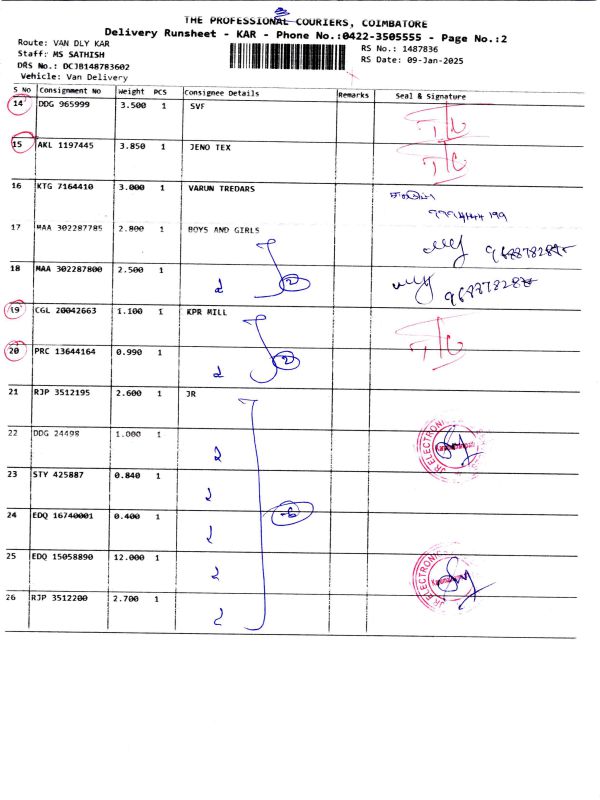 THE PROFESSIONAL COURIERS, COIMBATORE
Delivery Runsheet - KAR - Phone No.:0422-3505555 - Page No.:2
Route: VAN DLY KAR
Staff: MS SATHISH
DRS No.: DCJB148783602
Vehicle: Van Delivery
RS No.: 1487836
RS Date: 09-Jan-2025
S No Consignment No Weight PCS Consignee Details Remarks Seal & Signature
14 DDG 965999 3.500 1 SVF
15 AKL 1197445 3.850 1 JENO TEX
16 KTG 7164410 3.000 1 VARUN TREDARS
17 MAA 302287785 2.800 1 BOYS AND GIRLS
18 MAA 302287800 2.500 1
2
19 CGL 20042663 1.100 1 KPR MILL
20 PRC 13644164 0.990 1
2
21 RJP 3512195 2.600 1 JR
22 DDG 24498 1.000 1
23 STY 425887 0.840 1
24 EDQ 16740001 0.400 1
6
25 EDQ 15058890 12.000 1
26 RJP 3512200 2.700 1
JR ELECTRONI
JR ELECTRONI